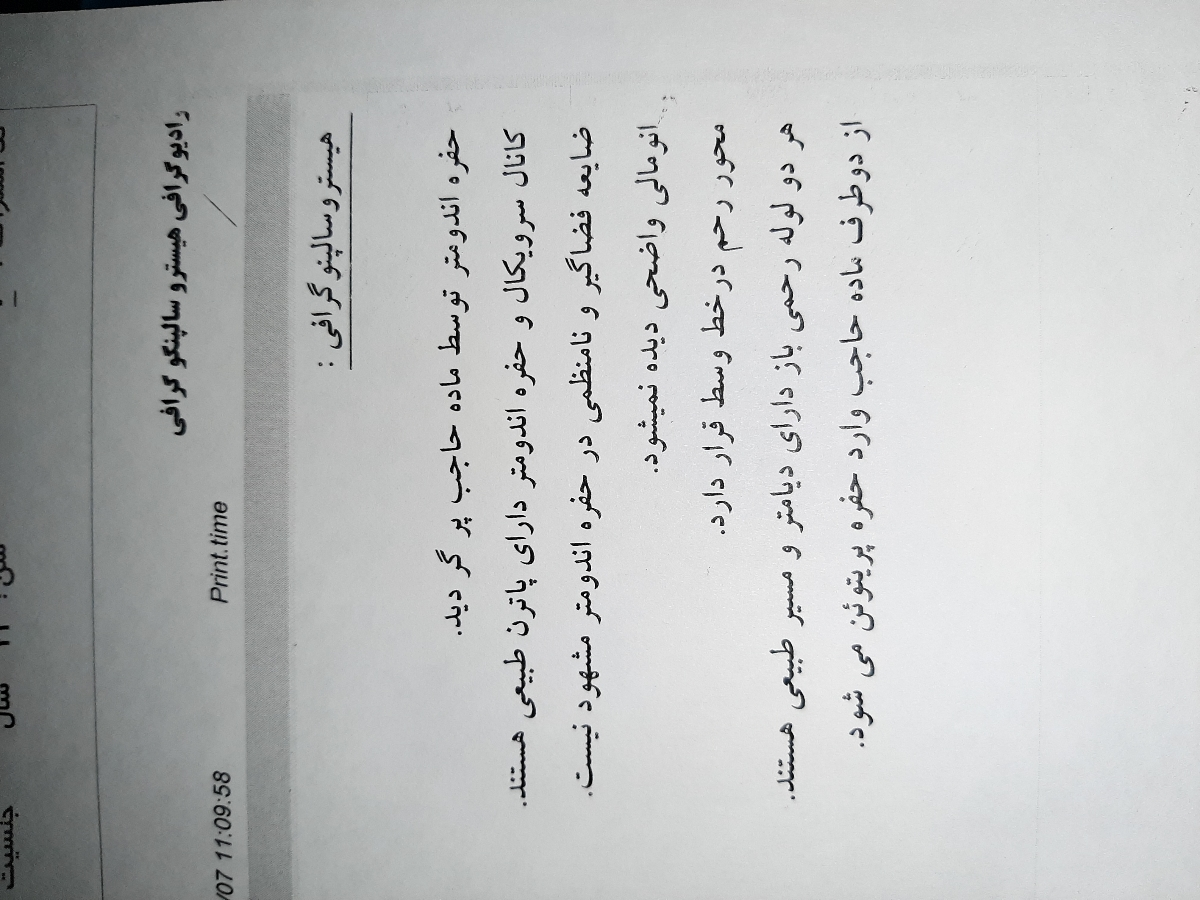 سال
جنسیت
رادیوگرافی هیستروسالپنگوگرافی
Print.time
/07 11:09:58
هیستروسالپنوگرافی :
حفره اندومتر توسط ماده حاجب پر گردید.
کانال سرویکال و حفره اندومتر دارای پاترن طبیعی هستند.
ضایعه فضاگیر و نامنظمی در حفره اندومتر مشهود نیست.
انومالی واضحی دیده نمیشود.
محور رحم درخط وسط قرار دارد.
هر دو لوله رحمی باز دارای دیامتر و مسیر طبیعی هستند.
از دوطرف ماده حاجب وارد حفره پریتوئن می شود.